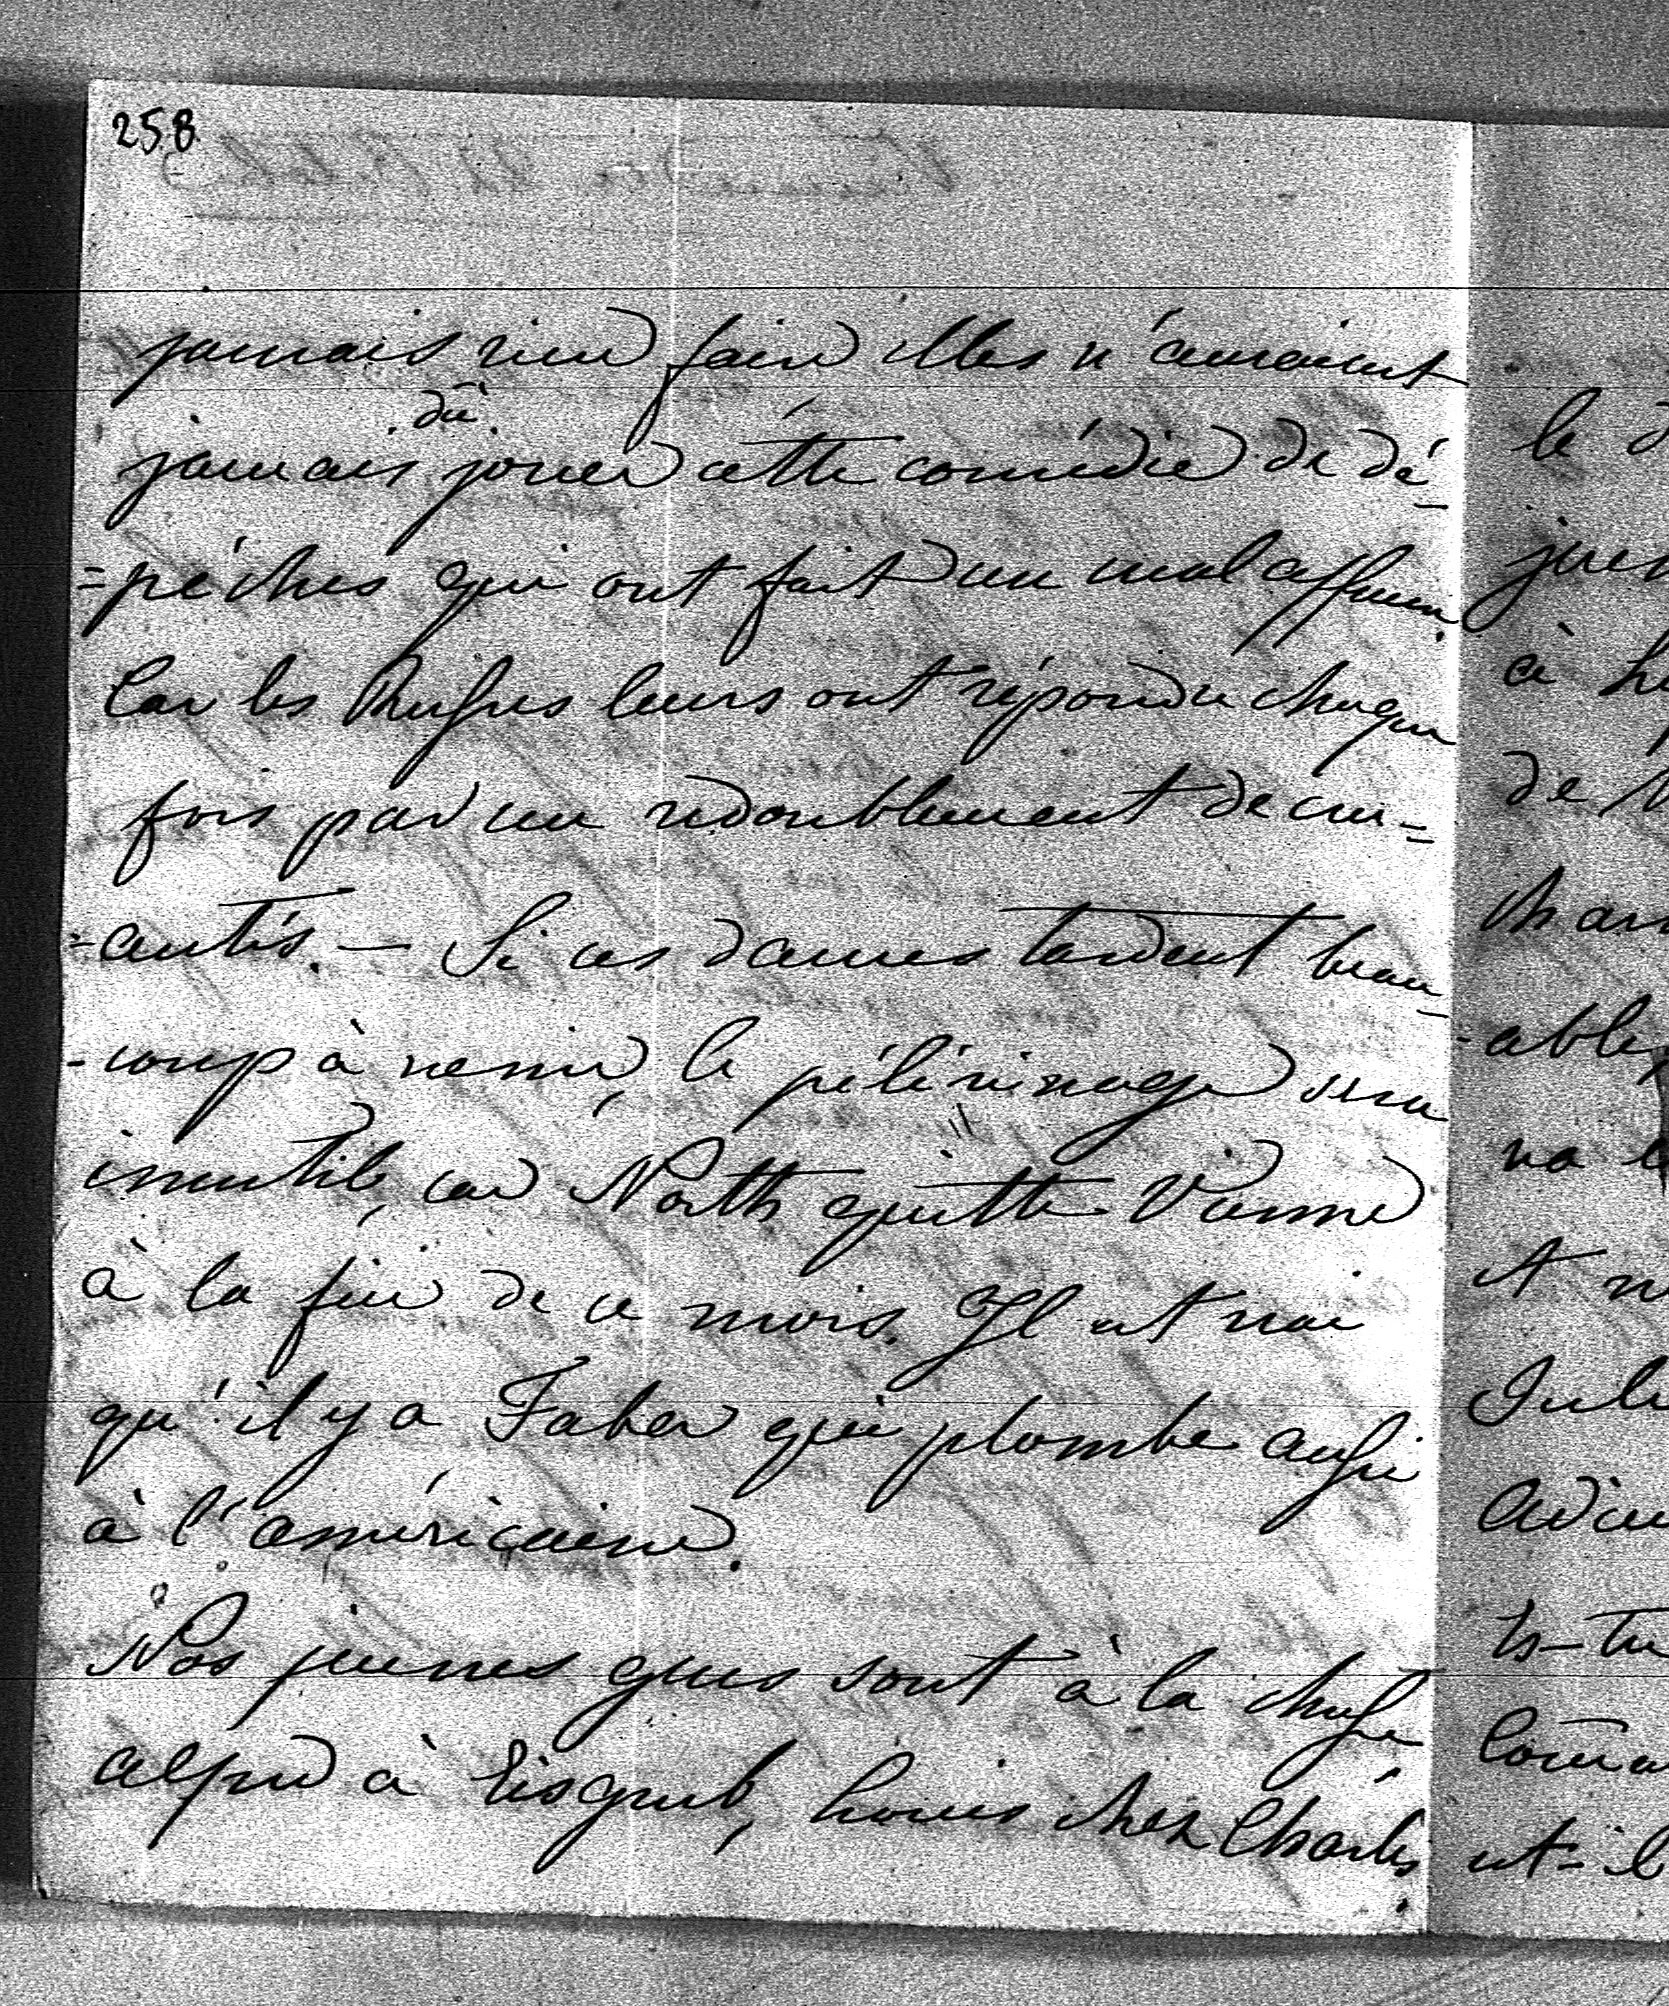 258.
jamais rien faire elles n'auraient
jamais dû jouer cette comédie de dé-
=pêches qui ont fait un mal affreux.
Car les Russes leurs ont répondu chaque
fois par un redoublement de cru=
=autés. — Si ces dames tardent beau-
-coup à venir, le pélérinage sera
inutile, car North quitte Vienne
à la fin de ce mois. Il est vrai
qu'il y a Faber qui plombe aussi
à l'américaine.
Nos jeunes gens sont à la chasse
alfred à Eisgrub, Louis chez Charles
le
à
de
-able
va
et
Jule
ts-tu
est-il